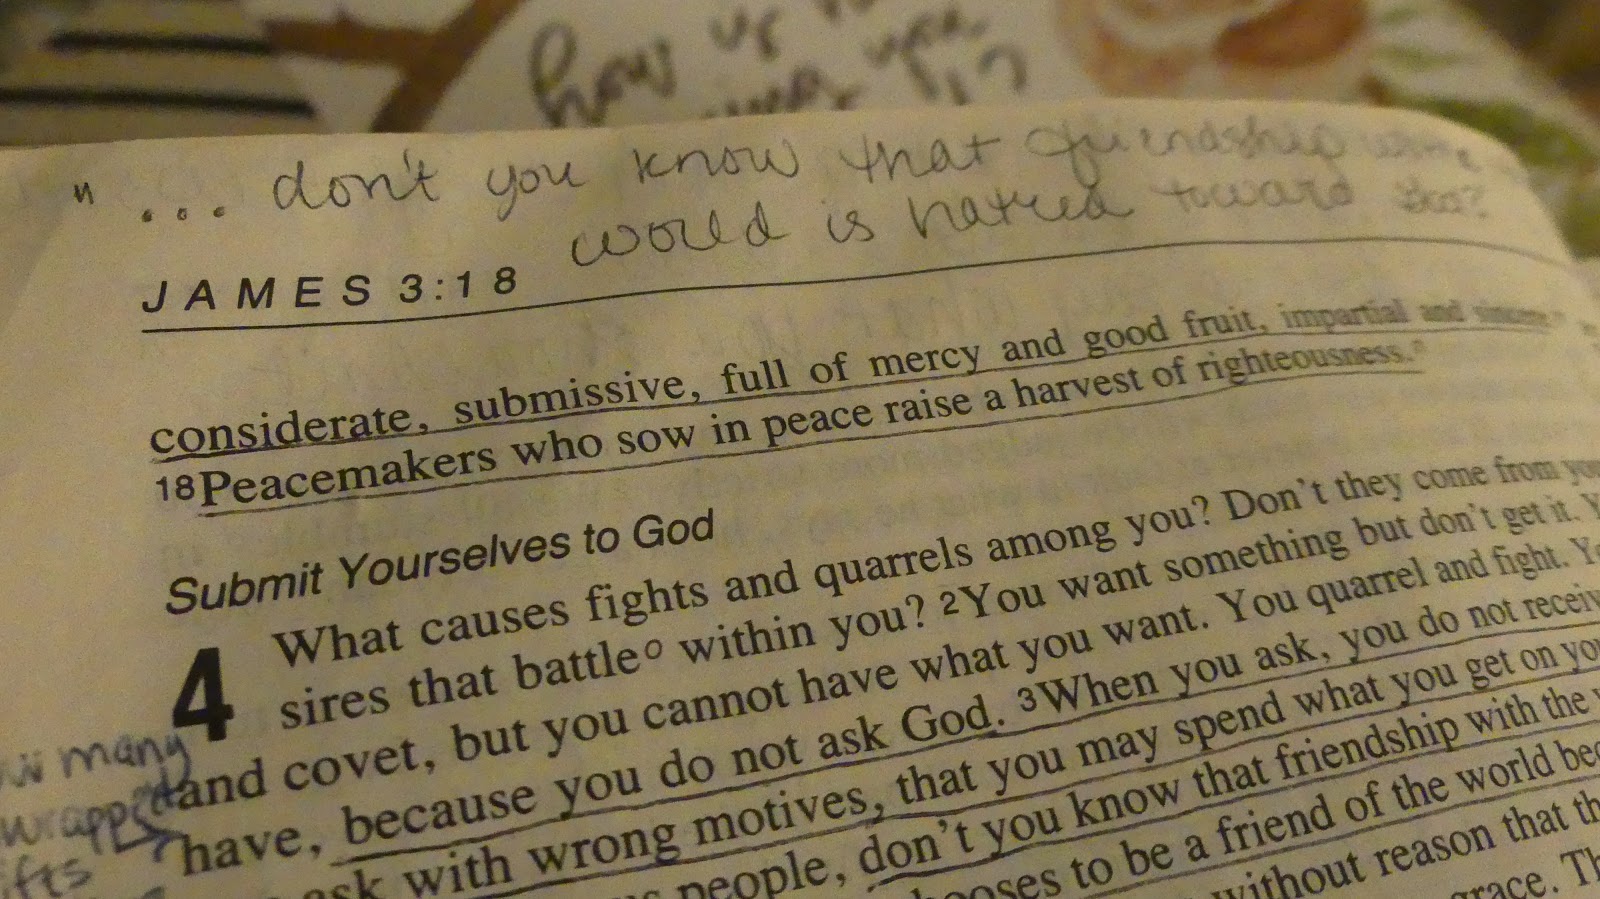 how us
" ... don't you know that friendship
world is hatred toward
JAMES 3:18
considerate, submissive, full of mercy and good fruit, impartial and sincere.
18Peacemakers who sow in peace raise a harvest of righteousness.°
Submit Yourselves to God
4 What causes fights and quarrels among you? Don't they come from
sires that battle° within you? 2You want something but don't get it.
and covet, but you cannot have what you want. You quarrel and fight.
have, because you do not ask God. 3When you ask, you do not
ask with wrong motives, that you may spend what you get on
people, don't you know that friendship with the
to be a friend of the world
without reason that
grace.
many
wrapped